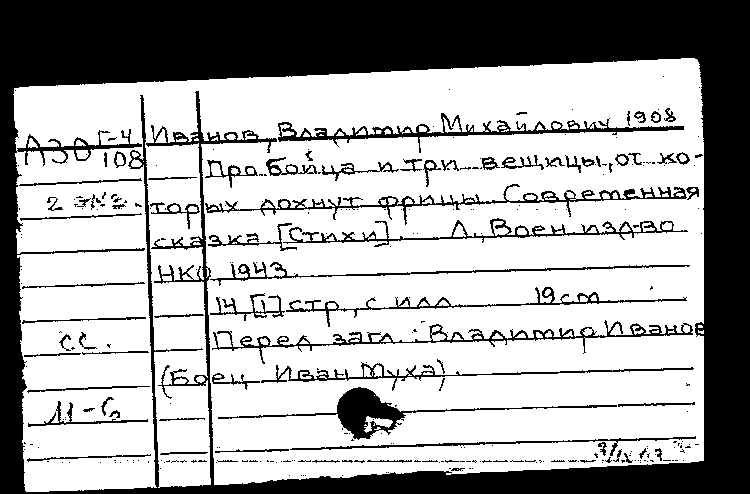 Г-4 Иванов, Владимир Михайлович, 1908
АЗО 108 Про бойца и три вещицы, от ко-
2 экз. торых дохнут фрицы. Современная
сказка. [Стихи]. Л., Воен. изд-во
НКО, 1943.
14, [1] стр., с илл. 19 cm
сс. Перед загл.: Владимир Иванов
(Боец Иван Муха).